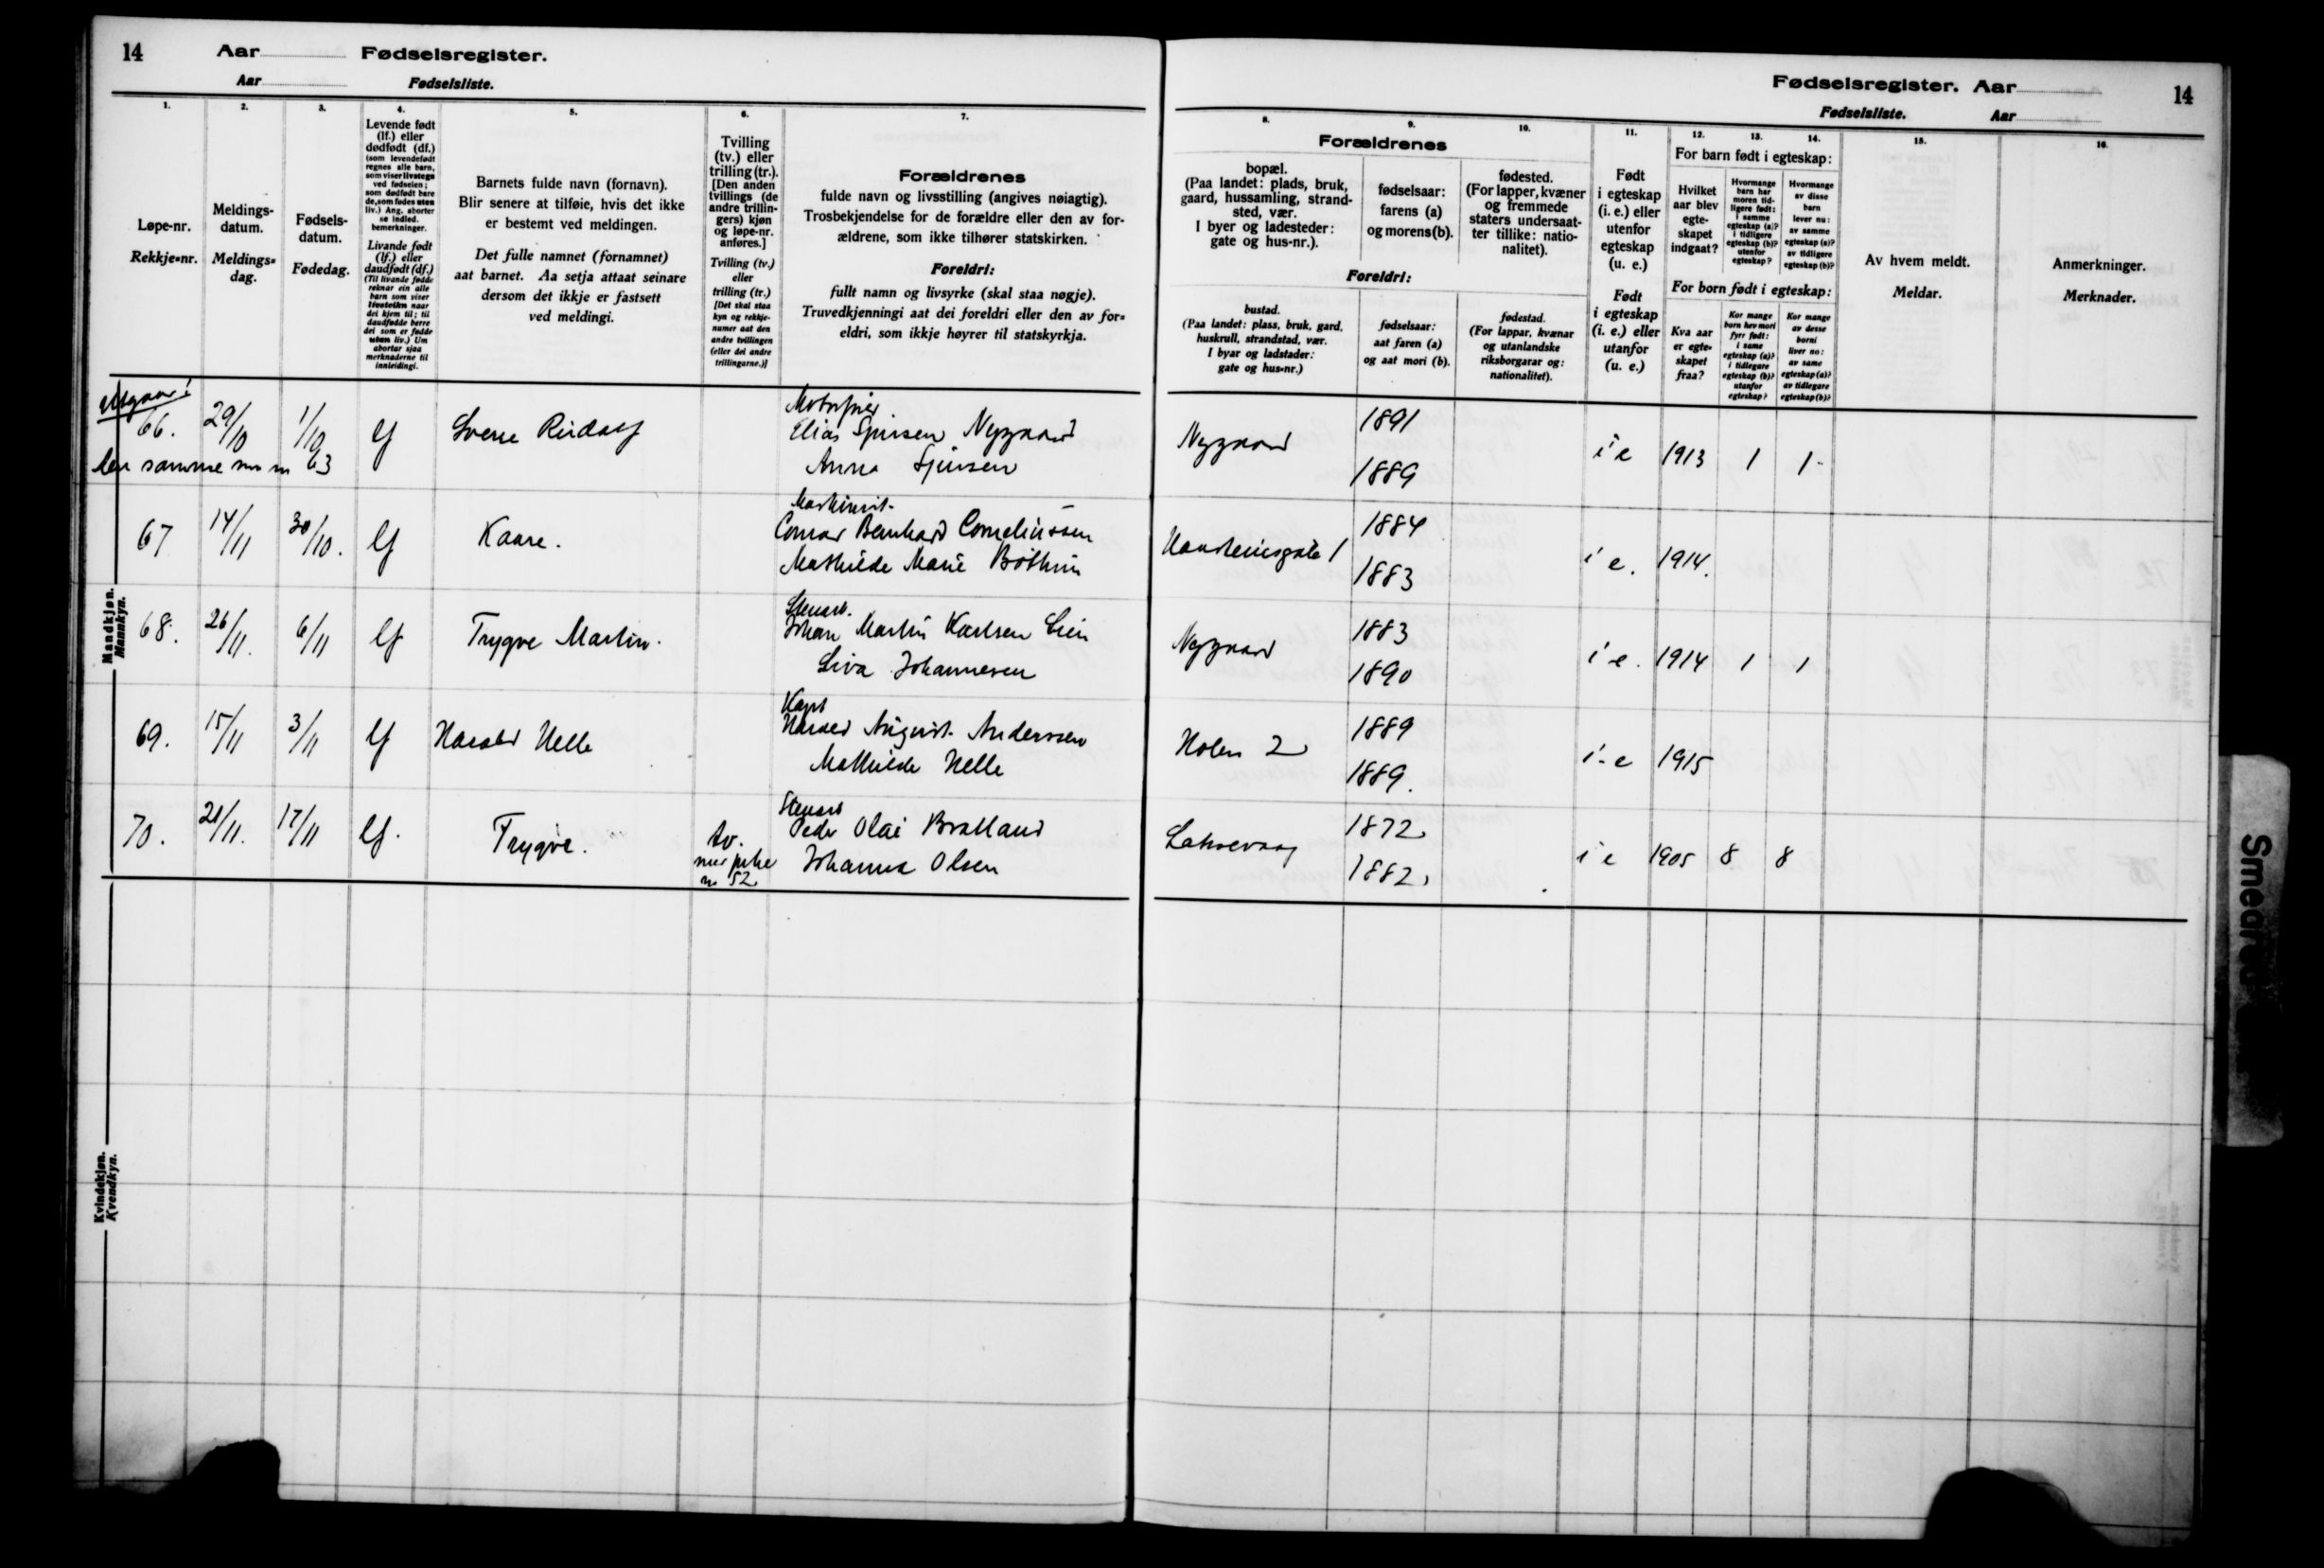 14 Aar Fødselsregister.
Aar Fødselsliste.
1. 2. 3. 4. 5. 6. 7.
Løpe-nr.
Rekkje-nr.
Meldings-
datum.
Meldings-
dag.
Fødsels-
datum.
Fødedag.
Levende født
(lf.) eller
dødfødt (df.)
(som levendefødt
regnes alle barn,
som viser livstegn
ved fødselen;
som dødfødt bare
de, som fødes uten
liv.) Ang. aborter
se indled.
bemerkninger.
Livande født
(lf.) eller
daudfødt (df.)
(Til livande fødde
reknar ein alle
barn som viser
livsteikn naar
dei kjem til; til
daudfødde berre
dei som er fødde
utan liv.) Um
abortar sjaa
merknaderne til
innleidingi.
Barnets fulde navn (fornavn).
Blir senere at tilføie, hvis det ikke
er bestemt ved meldingen.
Det fulle namnet (fornamnet)
aat barnet. Aa setja attaat seinare
dersom det ikkje er fastsett
ved meldingi.
Tvilling
(tv.) eller
trilling (tr.).
[Den anden
tvillings (de
andre trillin-
gers) kjøn
og løpe-nr.
anføres.]
Tvilling (tv.)
eller
trilling (tr.)
[Det skal staa
kyn og rekkje-
numer aat den
andre tvillingen
(eller dei andre
trillingarne.)]
Forældrenes
fulde navn og livsstilling (angives nøiagtig).
Trosbekjendelse for de forældre eller den av for-
ældrene, som ikke tilhører statskirken.
Foreldri:
fullt namn og livsyrke (skal staa nøgje).
Truvedkjenningi aat dei foreldri eller den av for-
eldri, som ikkje høyrer til statskyrkja.
Utgaar!
66. 29/10 1/10 lf Sverre Rudolf
Elias Sjursen Nygaard
Anna Sjursen
den samme som nr 63
67 14/11 30/10. lf Kaare.
Maskinist.
Conrad Bernhard Corneliussen
Mathilde Marie
68. 26/11. 6/11 lf Trygve Martin.
Stenarb.
Johan Martin Karlsen Lien
Johannesen
69. 15/11 3/11 lf Harald Helle
Harald August Anderssen
Mathilde Helle
70. 21/11. 17/11 lf. Trygve. tv.
med pike
nr 52
Stenarb
Peder Olai Bratland
Johanna Olsen
Mandkjøn.
Mannkyn.
Kvindekjøn.
Kvendkyn.
Fødselsregister. Aar 14
Fødselsliste. Aar
8. 9. 10. 11. 12. 13. 14. 15. 16.
Forældrenes
bopæl.
(Paa landet: plads, bruk,
gaard, hussamling, strand-
sted, vær.
I byer og ladesteder:
gate og hus-nr.).
fødselsaar:
farens (a)
og morens (b).
fødested.
(For lapper, kvæner
og fremmede
staters undersaat-
ter tillike: natio-
nalitet).
Foreldri:
bustad.
(Paa landet: plass, bruk, gard,
huskrull, strandstad, vær.
I byar og ladstader:
gate og hus-nr.)
fødselsaar:
aat faren (a)
og aat mori (b).
fødestad.
(For lappar, kvænar
og utanlandske
riksborgarar og:
nationalitet).
Født
i egteskap
(i. e.) eller
utenfor
egteskap
(u. e.)
Født
i egteskap
(i. e.) eller
utanfor
(u. e.)
For barn født i egteskap:
Hvilket
aar blev
egte-
skapet
indgaat?
Hvormange
barn har
moren tid-
ligere født:
i samme
egteskap (a)?
i tidligere
egteskap (b)?
utenfor
egteskap?
Hvormange
av disse
barn
lever nu:
av samme
egteskap (a)?
av tidligere
egteskap (b)?
For born født i egteskap:
Kva aar
er egte-
skapet
fraa?
Kor mange
born hev mori
fyrr født:
i same
egteskap (a)?
i tidlegare
egteskap (b)?
utanfor
egteskap?
Kor mange
av desse
borni
liver no:
av same
egteskap (a)?
av tidlegare
egteskap (b)?
Av hvem meldt.
Meldar.
Anmerkninger.
Merknader.
Nygaard 1891 1889 i e 1913 1 1
1884 1883 i e. 1914.
Nygaard 1883 1890 i e. 1914 1 1
Holen 2 1889 1889. i e 1915
Laksevaag 1872 1882 i e 1905 8 8